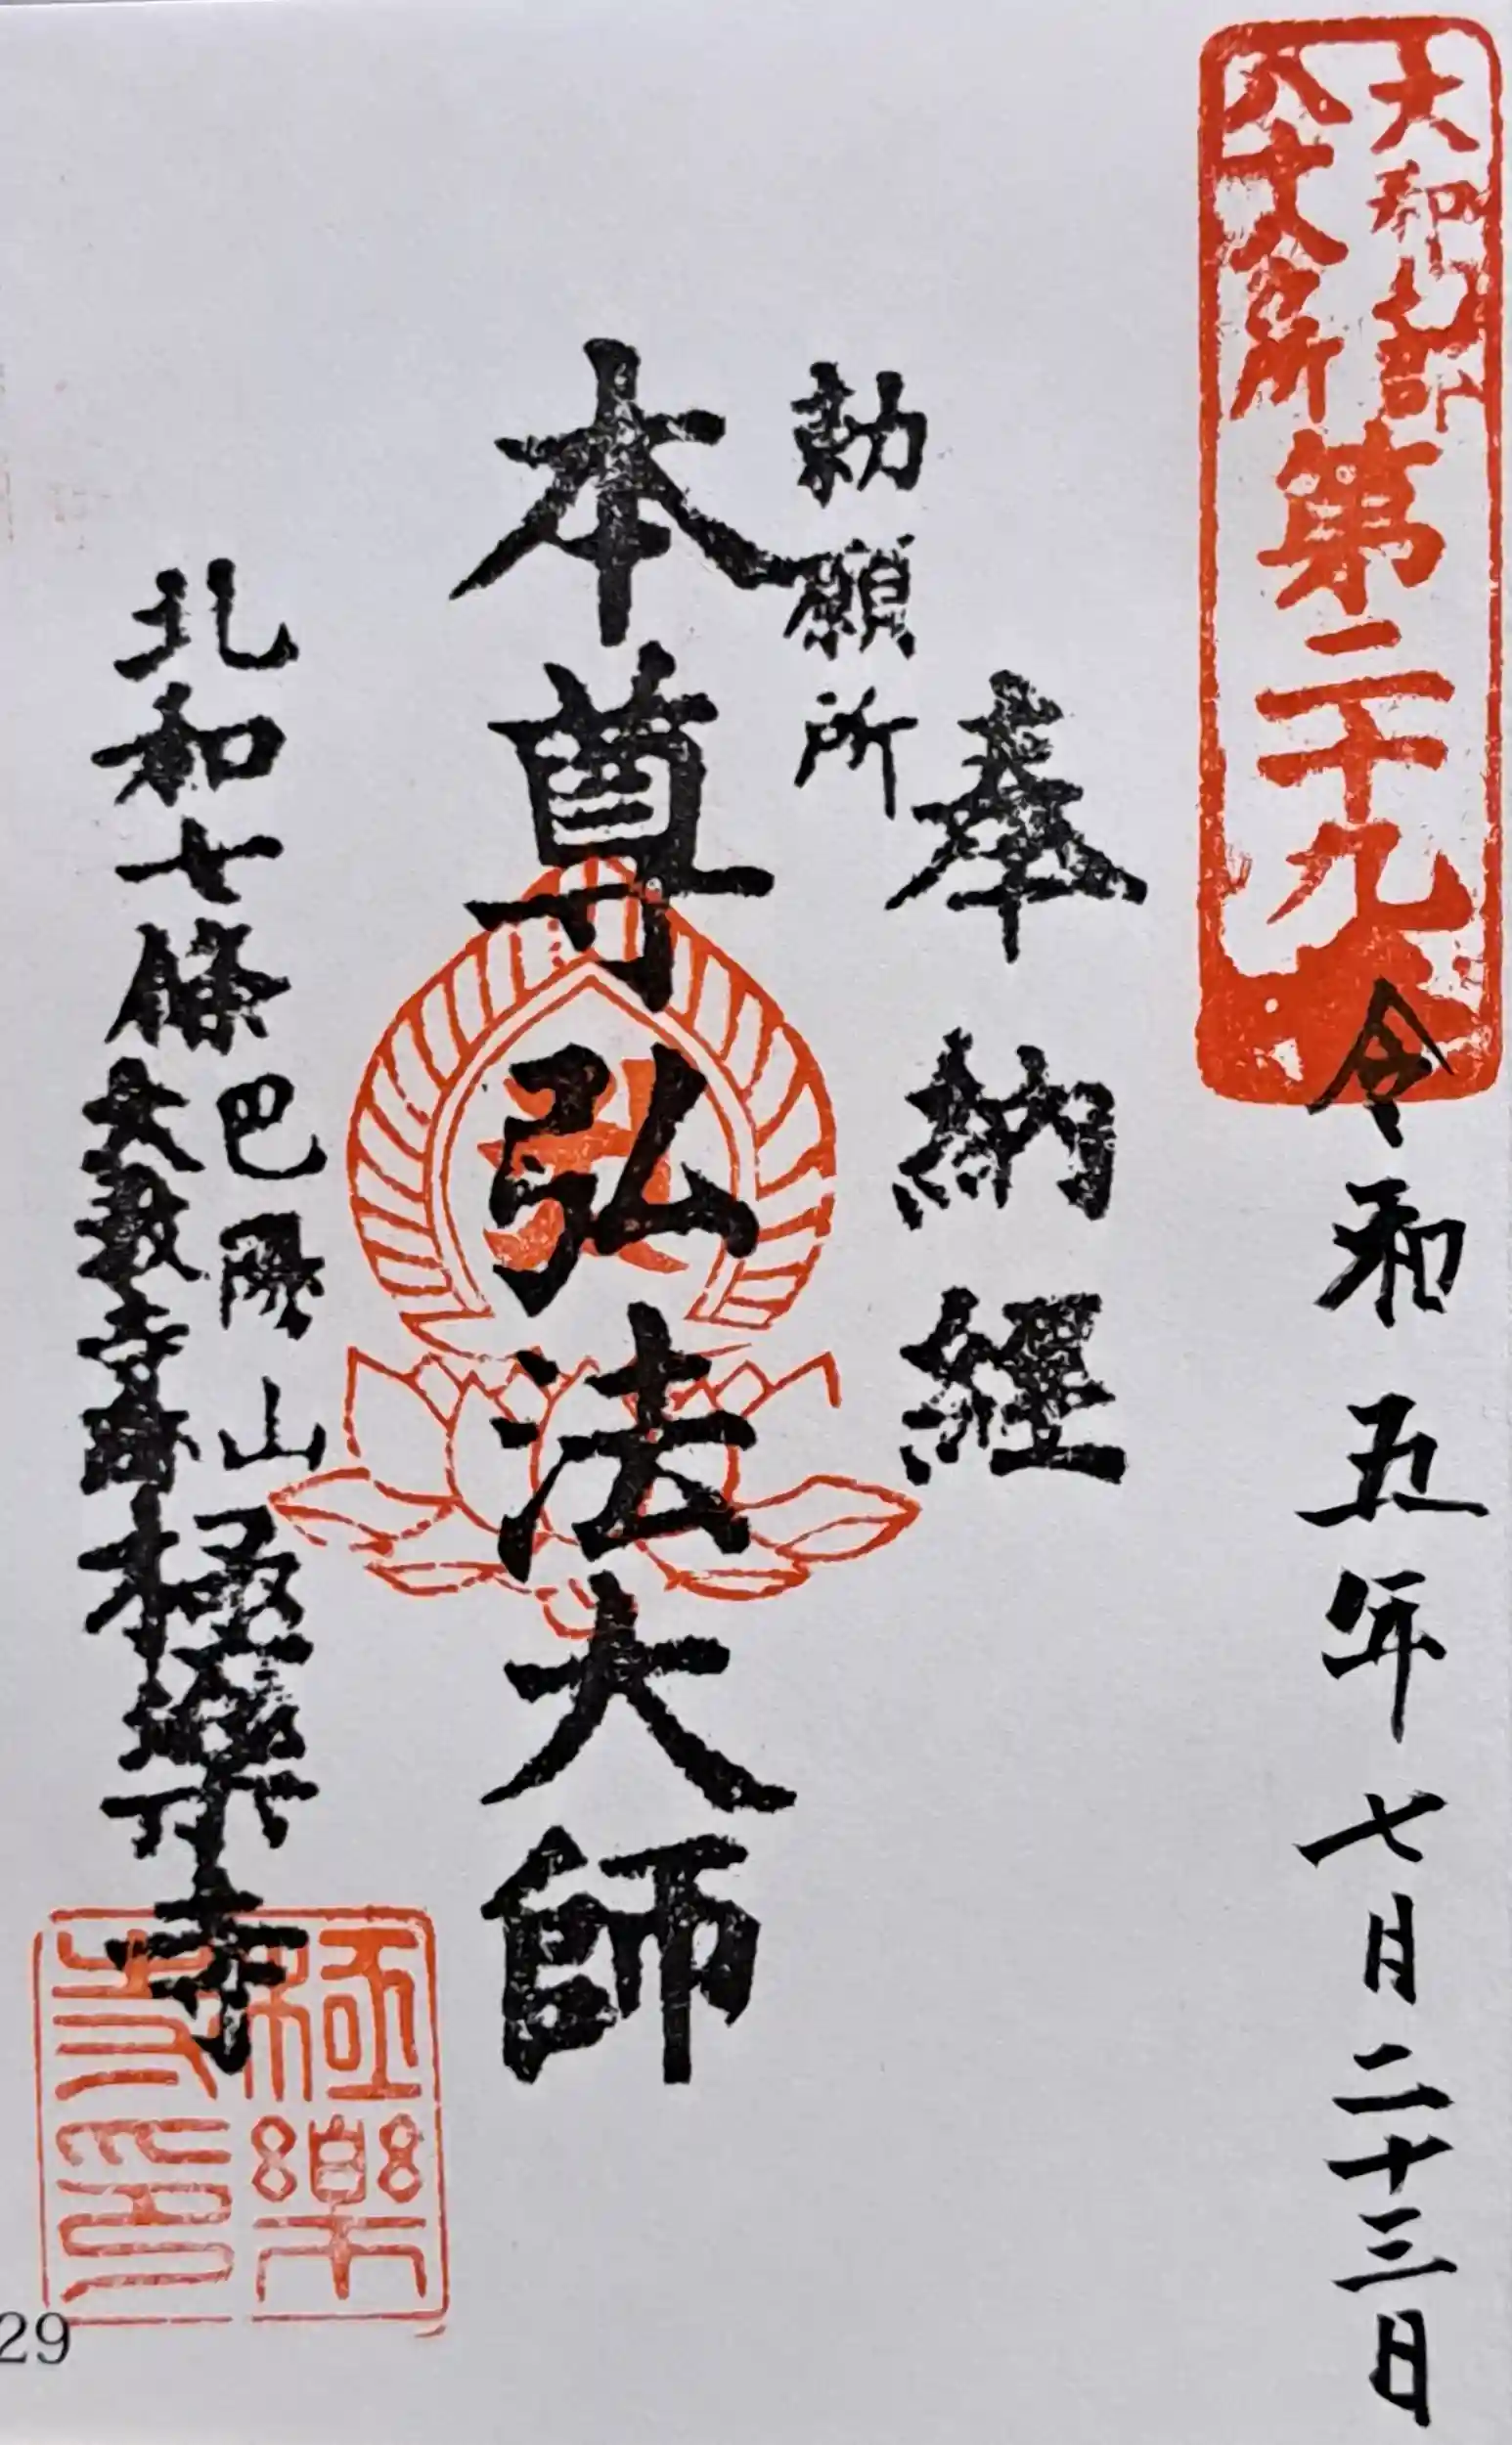 大和北部
八十八ヶ所
第二十九
令和五年七月二十三日
奉納經
勅願所
本尊弘法大師
北和七條
巴陵山
極樂寺
極樂
寺印
29